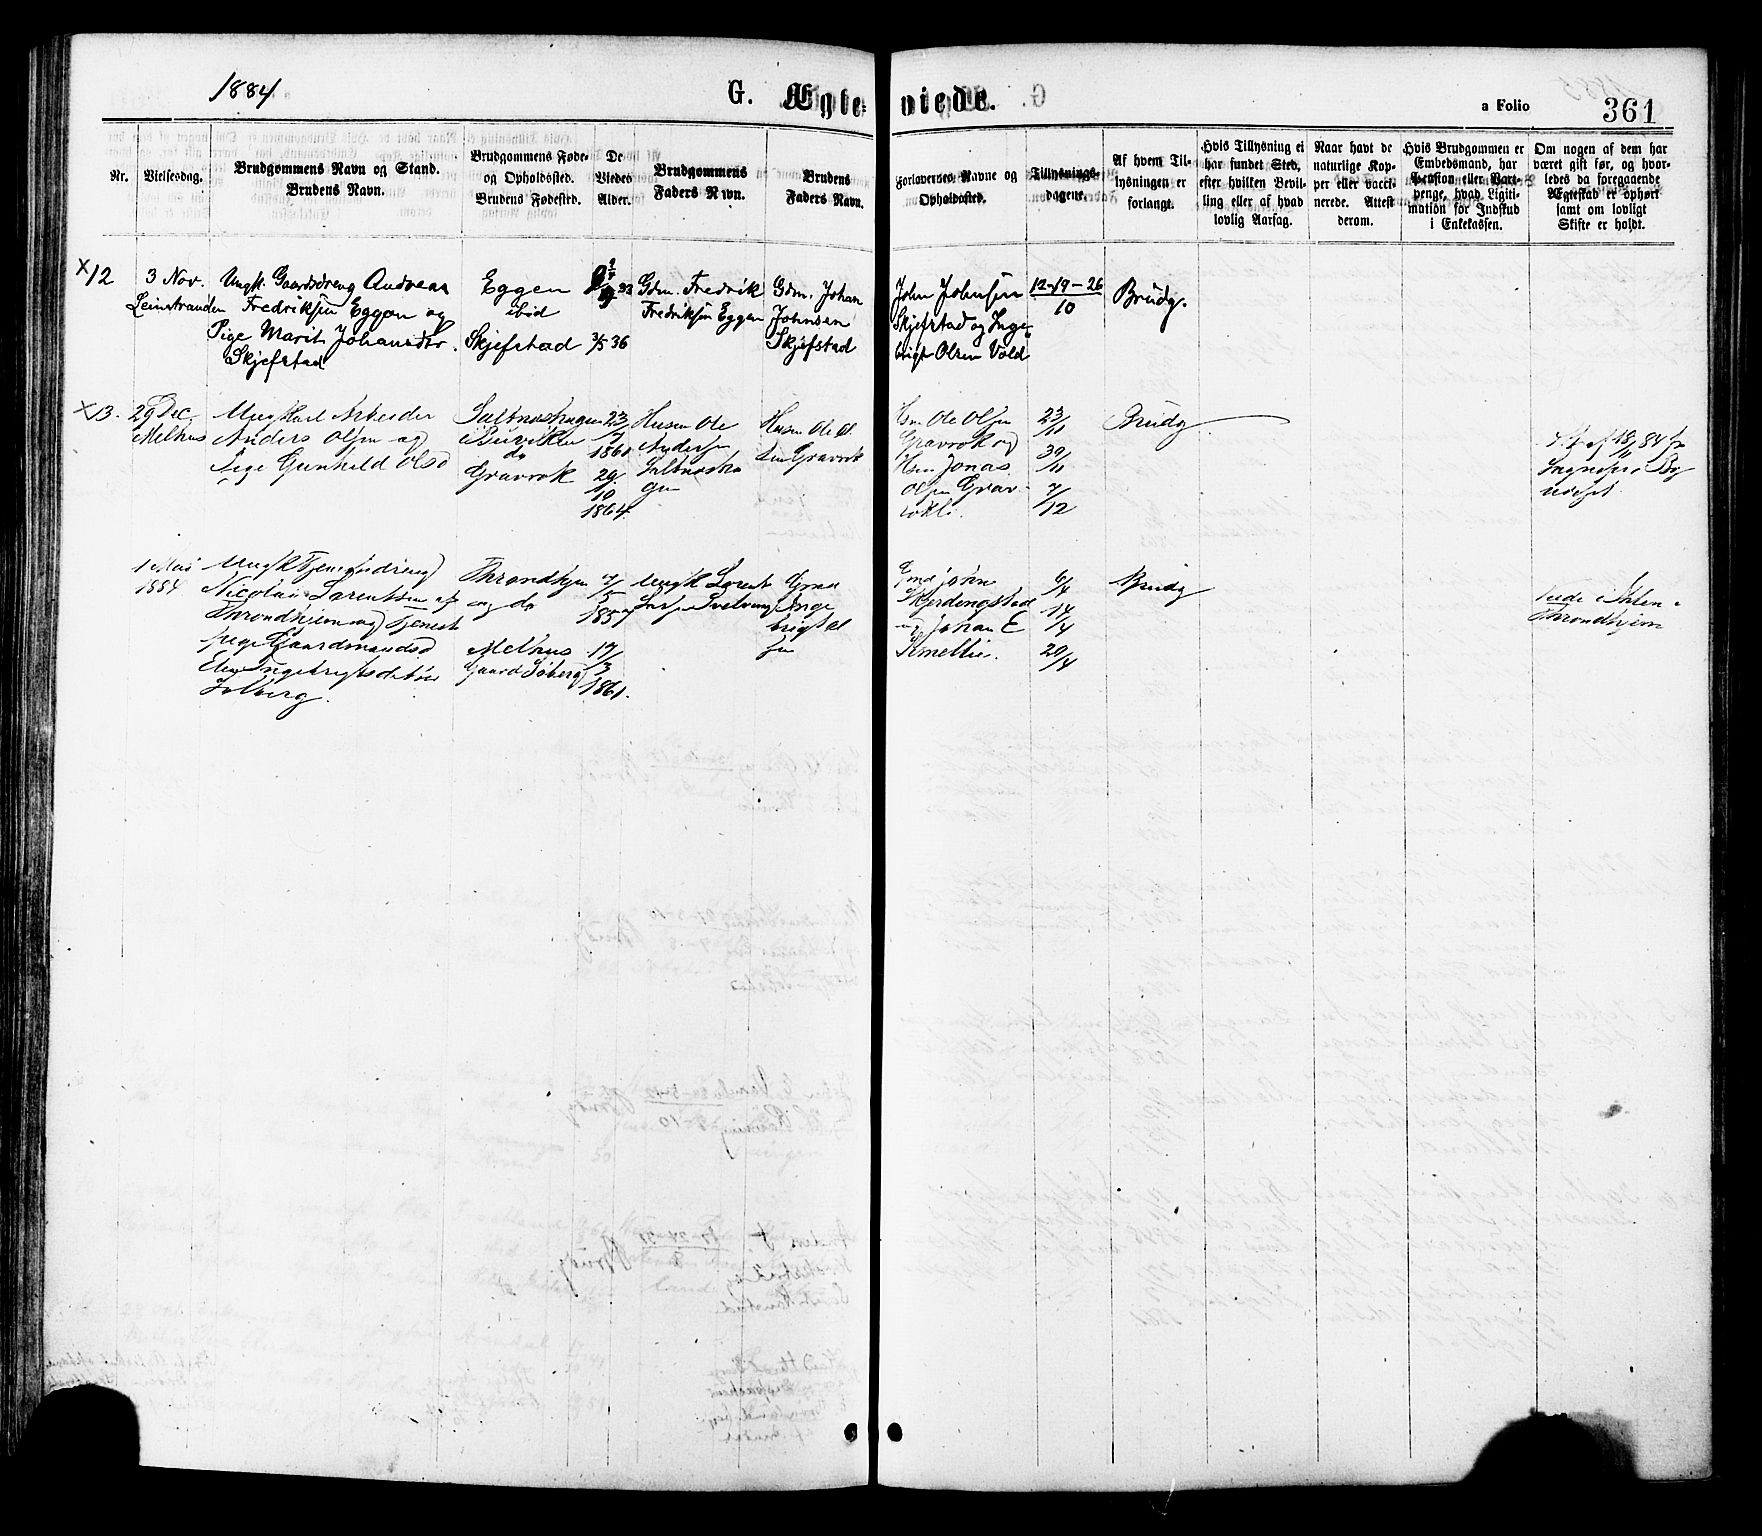 1884
G. Ægteviede.
a Folio 361
Nr.
Vielsesdag.
Brudgommens Navn og Stand.
Brudens Navn.
Brudgommens Føde-
og Opholdssted.
Brudens Fødested.
De
Viedes
Alder.
Brudgommens
Faders Navn.
Brudens
Faders Navn.
Forlovernes Navne og
Opholdssted.
Tillysnings-
dagene.
Af hvem Til-
lysningen er
forlangt.
Hvis Tillysning ei
har fundet Sted,
efter hvilken Bevil-
ling eller af hvad
lovlig Aarsag.
Naar havt de
naturlige Kop-
per eller vacci-
nerede. Attest
derom.
Hvis Brudgommen er
Embedsmand, har
Pension eller Vart-
penge, hvad Ligiti-
mation for Indskud
i Enkekassen.
Om nogen af dem har
været gift før, og hvor-
ledes da foregaaende
Ægteskab er ophørt
samt om lovligt
Skifte er holdt.
x12
3 Nov.
Leinstranden
Ungk. Gaardsdreng Andreas
Fredriksen Eggen og
Pige Marit Johansdr.
Skjefstad
Eggen
ibid
Skjefstad
33
3/5 36
Gdm. Fredrik
Fredriksen Eggen
Gdm. Johan
Johnsen
Skjefstad
John Johnsen
Skjefstad og Inge-
brigt Olsen Vold
12-19-26
10
Brudg.
x13.
29 Dec.
Melhus
Ungkarl Arbeider
Anders Olsen og
Pige Gunhild Olsd
Saltnæshagen
Buviken
do
Gravrok
23
/7
1861
29.
/10
1864.
Husm Ole
Andersen
Saltnæsha
gen
Husm Ole Ol
sen Gravrok
Hsm Ole Olsen
Gravrok og
Hsm Jonas
Olsen Grav-
rokli.
23/11
30/11
7/12
Brudg
1 Mai
1884
Ungk Tjenestedreng
Nicolai Lorentsen af
Throndhjem og Tjeneste
pige Gaardmandsd
Elen Ingebrigtsdatter
Solberg.
Throndhjem
og do
Melhus
Gaard Søberg
7/5
1857
17/3
1861.
Ungk Lorents
Gmd
Inge
brigt Ol
sen
Gmd Jørn
Skjerdingstad
og Johan E
Kmellie.
6/4
14/4
20/4
Brudg
viede i Ihlen i
Throndhjem